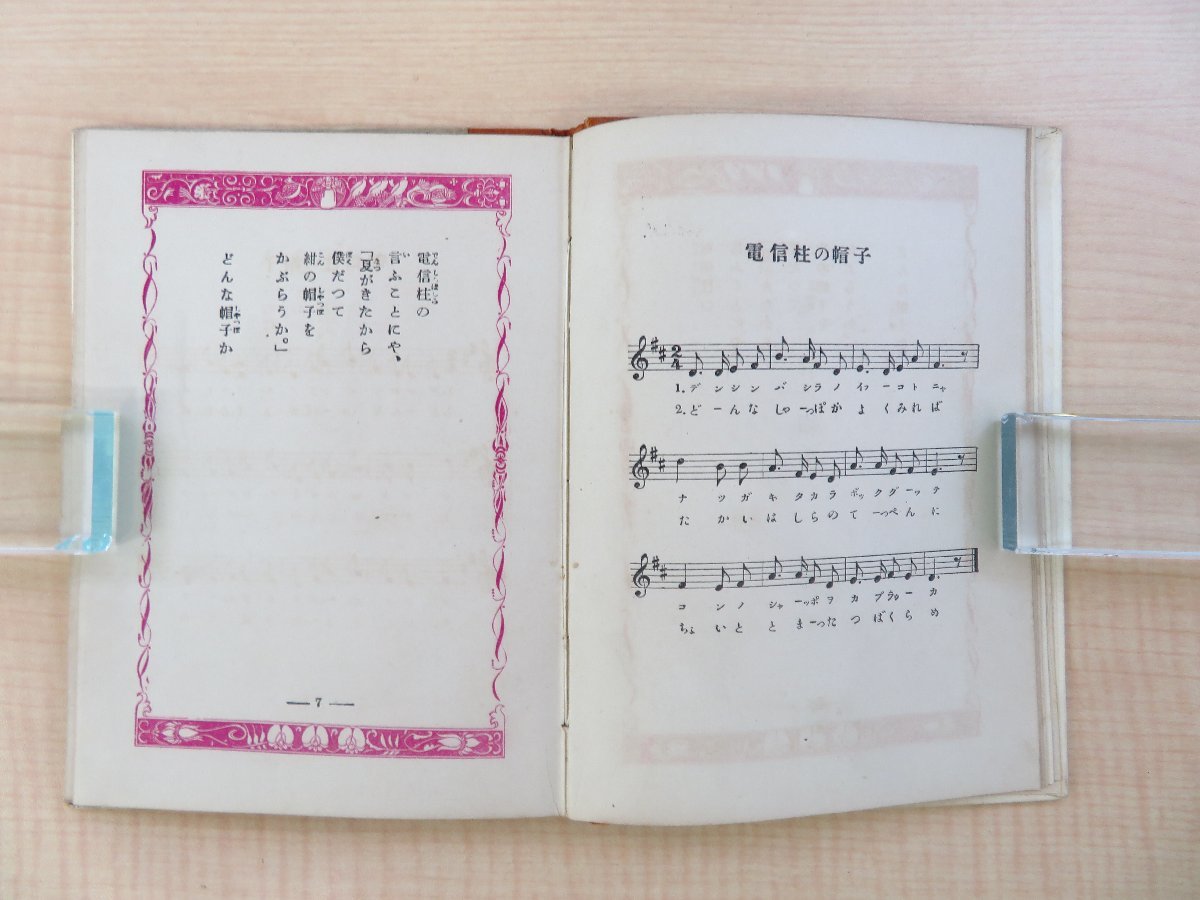 電信柱の
言ふことにや、
「夏がきたから
僕だつて
紺の帽子を
かぶらうか。」
どんな帽子か
— 7 —
電信柱の帽子
1. デンシンバシラノイフーコトニャ
2. どーんなしゃーっぽかよくみれば
ナツガキタカラボックダーッテ
たかいはしらのてーっぺんに
コンノシャーッポヲカブラウーカ
ちょいととまーったつばくらめ